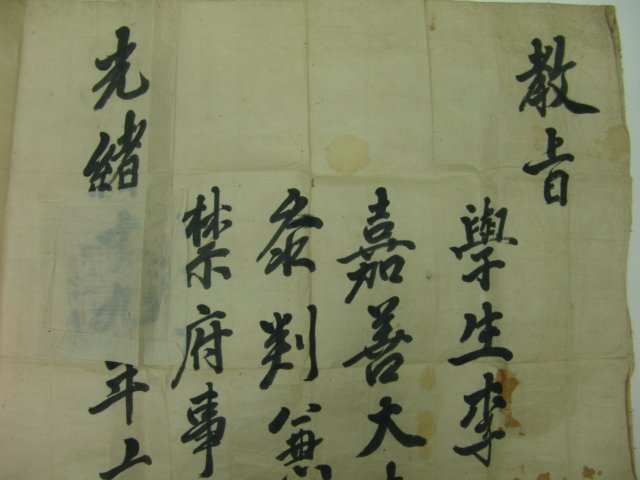 教旨
學生李
嘉善大
叅判兼
禁府事
光緒 年